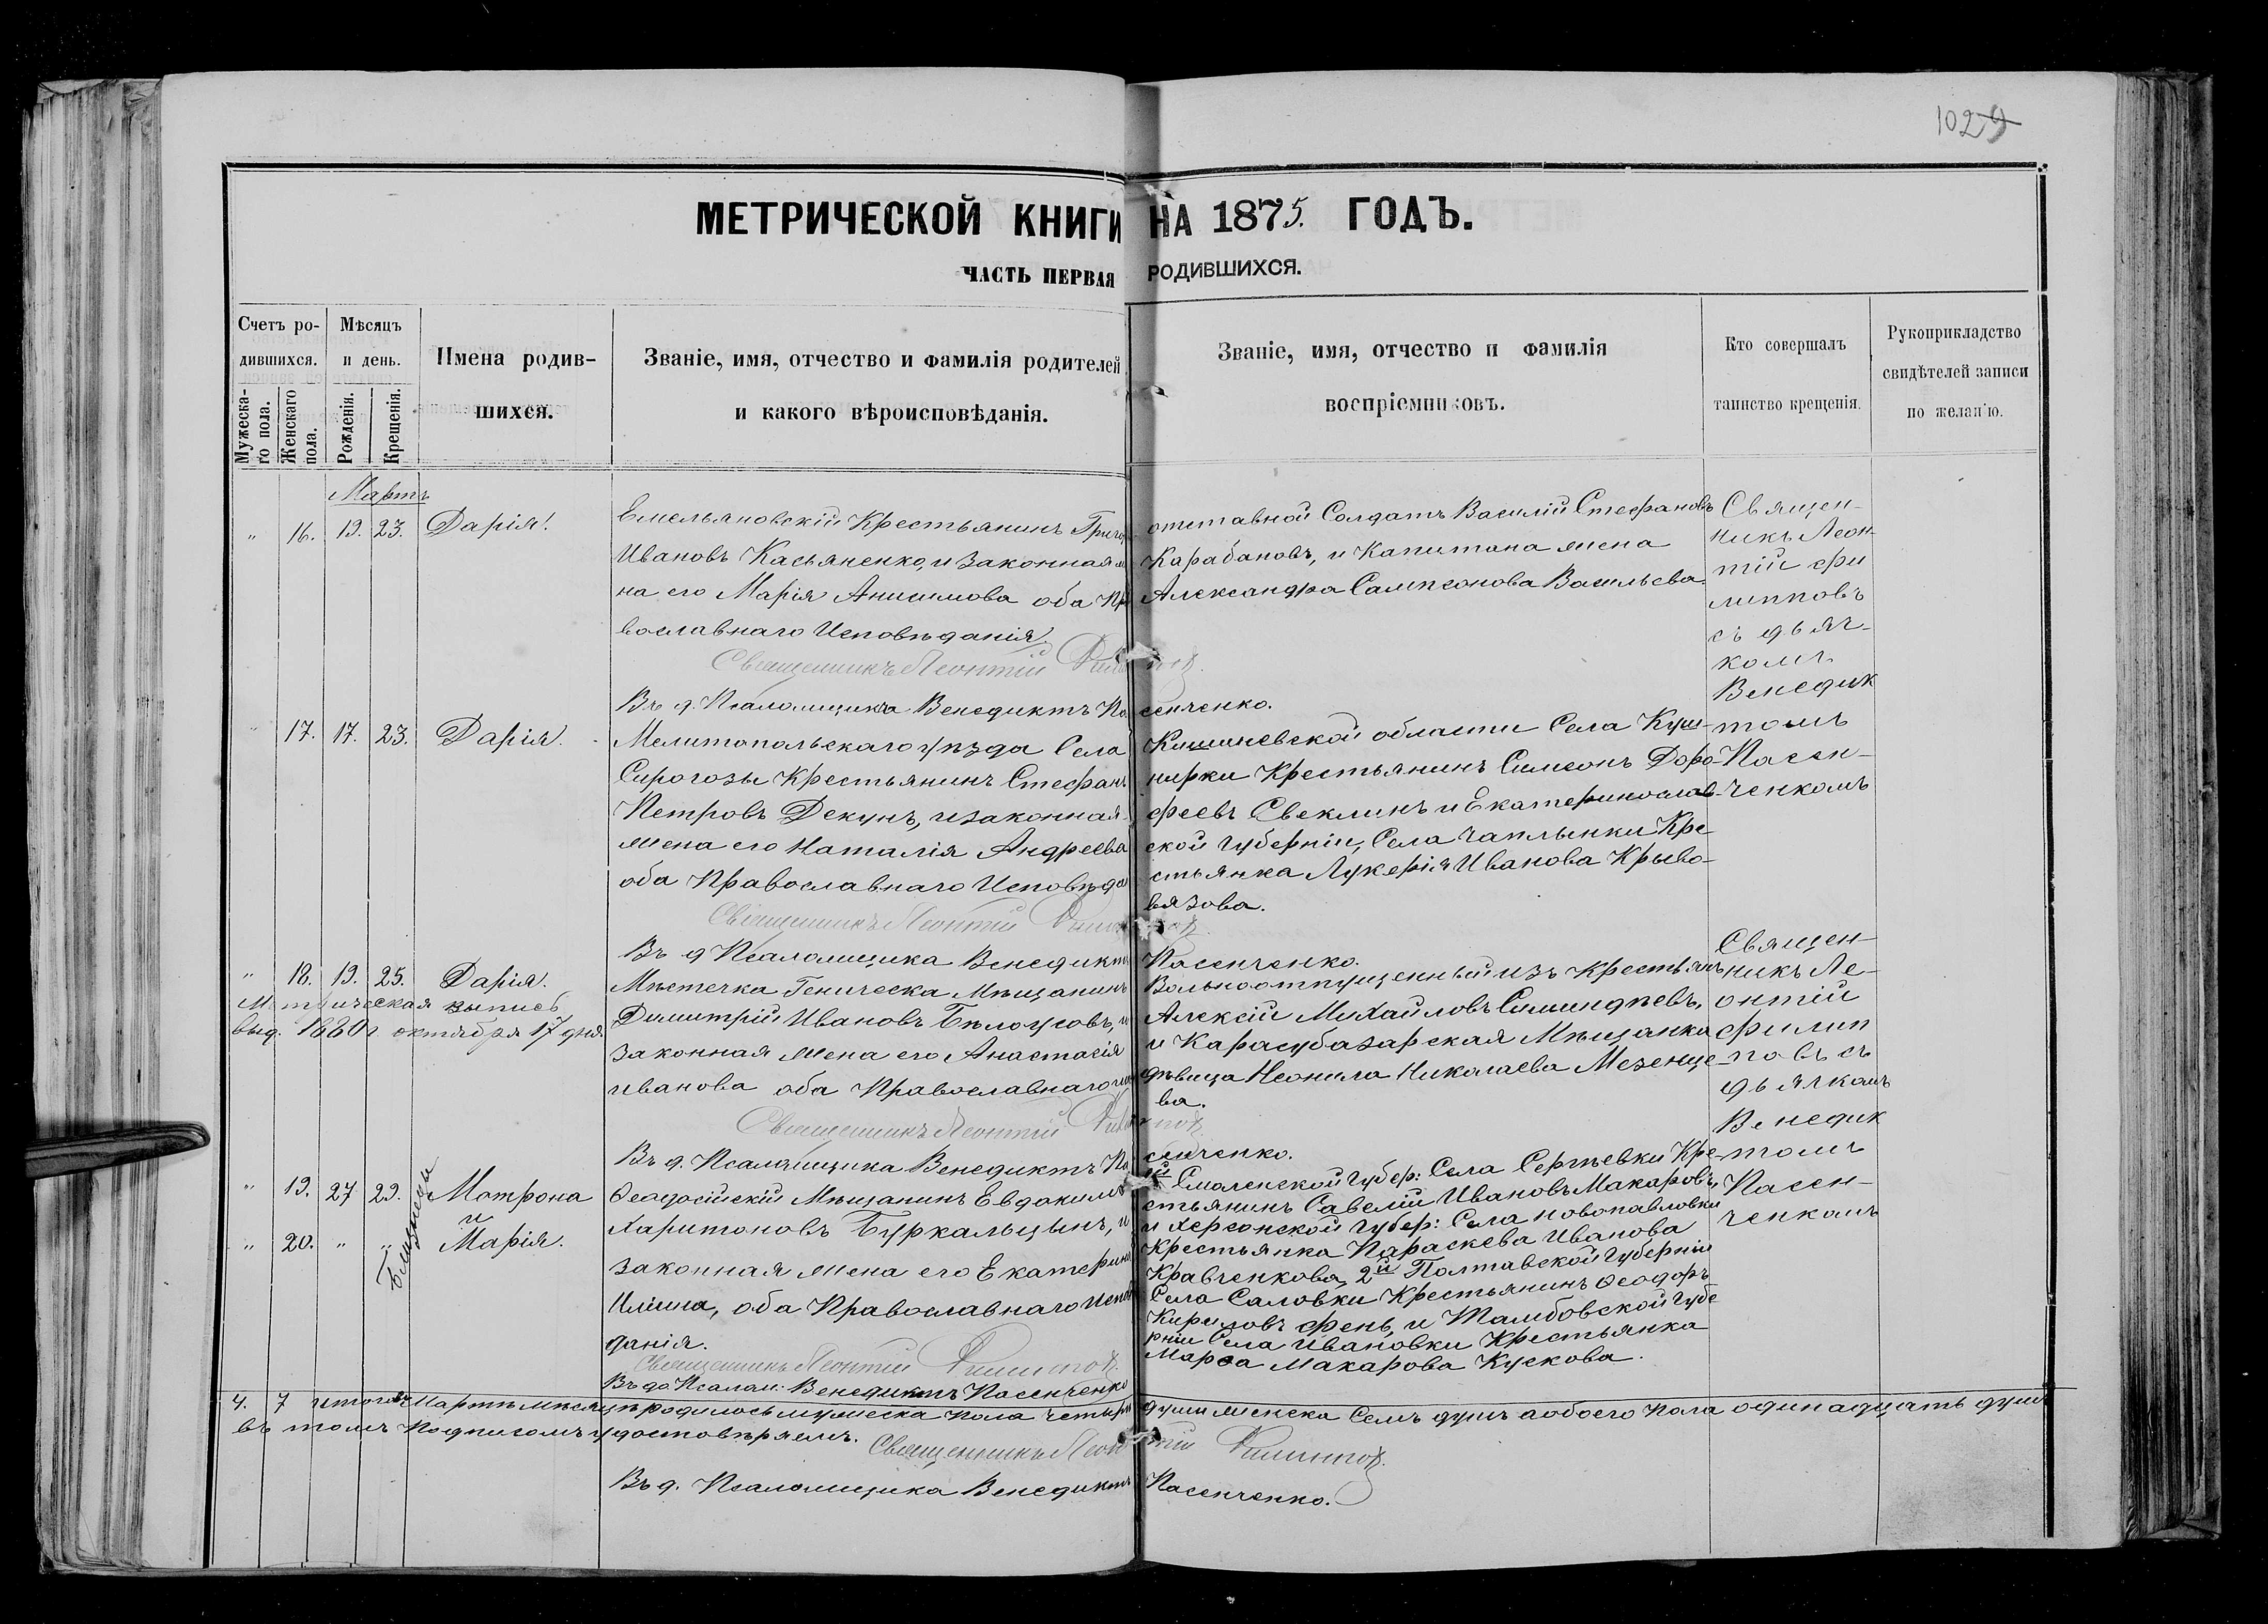 1029
МЕТРИЧЕСКОЙ КНИГИ НА 1875. ГОДЪ.
ЧАСТЬ ПЕРВАЯ РОДИВШИХСЯ.
Счетъ родившихся.
Мужескаго пола.
Женскаго пола.
Мѣсяцъ и день.
Рожденія.
Крещенія.
Имена родившихся.
Званіе, имя, отчество и фамилія родителей
и какого вѣроисповѣданія.
Званіе, имя, отчество и фамилія
воспріемниковъ.
Кто совершалъ
таинство крещенія.
Рукоприкладство
свидѣтелей записи
по желанію.
Мартъ
" 16. 19. 23. Дарія.
Емельяновскій Крестьянинъ Григо
Ивановъ Касьяненко, и законная
на его Марія Анисимова оба Пр
вославнаго Исповѣданія.
Священникъ Леонтій Филипповъ.
Въ д. Псаломщика Венедиктъ Пасенченко.
отставной Солдатъ Василій Стефановъ
Карабановъ, и Капитана жена
Александра Сампсонова Васильева.
Священ-
никъ Леон-
тій Фи
липповъ
съ дьяч-
комъ
Венедик
томъ
Пасен-
ченкомъ
" 17. 17. 23. Дарія.
Мелитопольскаго уѣзда Села
Сирогозы Крестьянинъ Стефанъ
Петровъ Декунъ, и законная
жена его Наталія Андреева
оба Православнаго Исповѣда
Священникъ Леонтій Филипповъ.
Въ д Псаломщика Венедиктъ Пасенченко.
Кишиневской области Села Куш-
нирки Крестьянинъ Симеонъ Доро-
феевъ Свеклинъ и Екатеринослав-
ской губерніи, Села Чаплынки Кре-
стьянка Лукерія Иванова Крыво-
вязова.
" 18. 19. 25. Дарія.
Метрическая выпись
выд. 1880 г. октября 17 дня
Мѣстечка Геническа Мѣщанинъ
Димитрій Ивановъ Бѣлоусовъ, и
законная жена его Анастасія
Иванова оба Православнаго
Священникъ Леонтій Филипповъ
Въ д. Псаломщика Венедиктъ Пасенченко.
Вольноотпущенный изъ Крестьянъ
Алексій Михайловъ
и Карасубазарская Мѣщанка
дѣвица Неонила Николаева Мезенце-
ва.
Священ-
никъ Ле-
онтій
Филип
повъ съ
дьячкомъ
Венедик
томъ
Пасен-
ченкомъ
" 19. 27 29. Матрона
и
" 20. " " Марія.
Близнецы
Ѳеодосійскій Мѣщанинъ Евдокимъ
Харитоновъ Буркальцынъ, и
законная жена его Екатерина
Иліина, оба Православнаго Исповѣ
данія.
Священникъ Леонтій Филипповъ.
Въ до Псалом: Венедиктъ Пасенченко
й Смоленской Губер: Села Сергѣевки Кре-
стьянинъ Савелій Ивановъ Макаровъ,
и Херсонской Губер: Села Новопавловки
Крестьянка Параскева Иванова
Кравченкова, 2й Полтавской Губерніи
Села Саловки Крестьянинъ Ѳеодоръ
Кириловъ Фень, и Тамбовской Губе
рніи Села Ивановки Крестьянка
Марѳа Макарова Кускова.
4. 7 итого въ Мартѣ мѣсяцѣ родилось мужеска пола четыри души женска Семъ душъ а обоего пола одинадцать душъ
въ томъ подписомъ удостовѣряемъ.
Священникъ Леонтій Филипповъ.
Въ д. Псаломщика Венедиктъ Пасенченко.